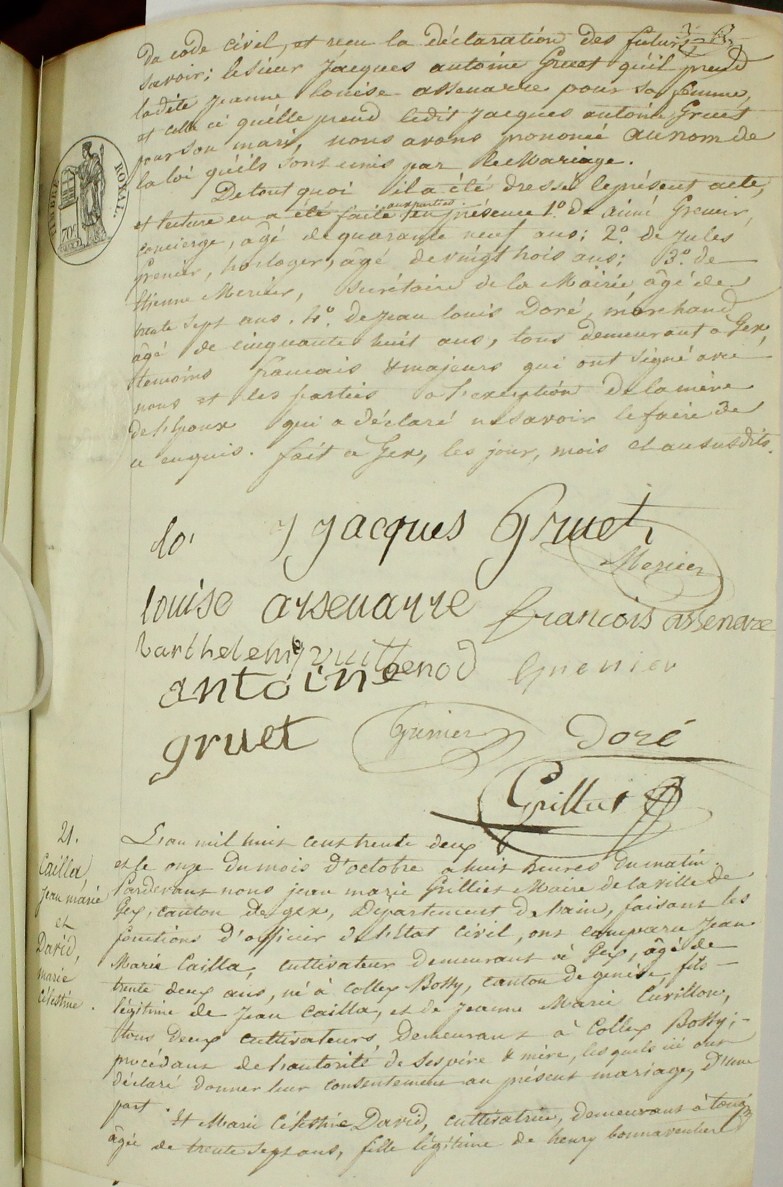 du code civil, et reçu la déclaration des futurs
savoir; le sieur Jacques antoine Gruet qu'il prend
ladite Jeanne Louise assenarre pour sa femme,
et celle ci quelle prend ledit Jacques antoine Gruet
pour son mari, nous avons prononcé au nom de
la loi qu'ils sont unis par le Mariage.
De tout quoi il a été dressé le présent acte,
aux parties
et lecture en a été faite en présence 1.º de aimé Grenier,
concierge, âgé de quarante neuf ans; 2.º de Jules
Grenier, horloger, âgé de vingt trois ans; 3.º de
Etienne Mercier, secrétaire de la Mairie âgé de
trente sept ans. 4.º de Jean Louis Doré, marchand
âgé de cinquante huit ans, tous demeurant à Gex,
témoins français & majeurs qui ont signé avec
nous et les parties à l'exception de la mère
de l'époux qui a déclaré ne savoir le faire de
ce enquis. fait à Gex, les jour, mois et an susdits.
TIMBRE ROYAL.
70
Jacques Gruet
Mercier
louise arsenarre francois assenare
barthelemy vuillenod Grenier
antoine
gruet Grenier Doré
Grillet
21.
Cailla
Jean marie
et
David,
marie
Célestine.
L'an mil huit cent trente deux
et le onze du mois d'octobre à huit heures du matin
Pardevant nous jean marie Grilliet Maire de la ville de
Gex, canton de gex, Département de l'ain, faisant les
fonctions d'officier de l'état civil, ont comparu Jean
Marie Cailla, cultivateur demeurant à Gex, âgé de
trente deux ans, né à Collex Bossy, canton de genève, fils
légitime de Jean Cailla, et de Jeanne Marie Curillon,
tous deux cultivateurs, demeurant à Collex Bossy;
procédant de l'autorité de ses père & mère, lesquels ici ont
déclaré donner leur consentement au présent mariage, d'une
part
Et Marie Célestine David, cultivatrice, demeurant à
âgée de trente sept ans, fille légitime de henry bonnaventure